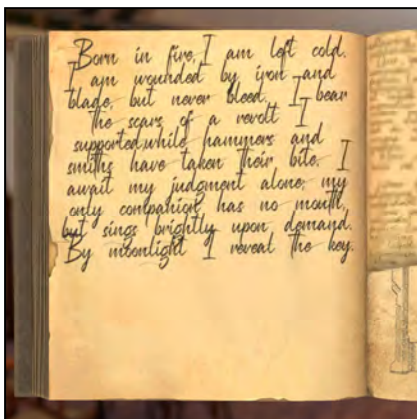 Born in fire, I am left cold.
I am wounded by iron and
blade, but never bleed. I bear
the scars of a revolt I
supported,while hammers and
smiths have taken their bite. I
await my judgment alone; my
only companion has no mouth,
but sings brightly upon demand.
By moonlight I reveal the key.